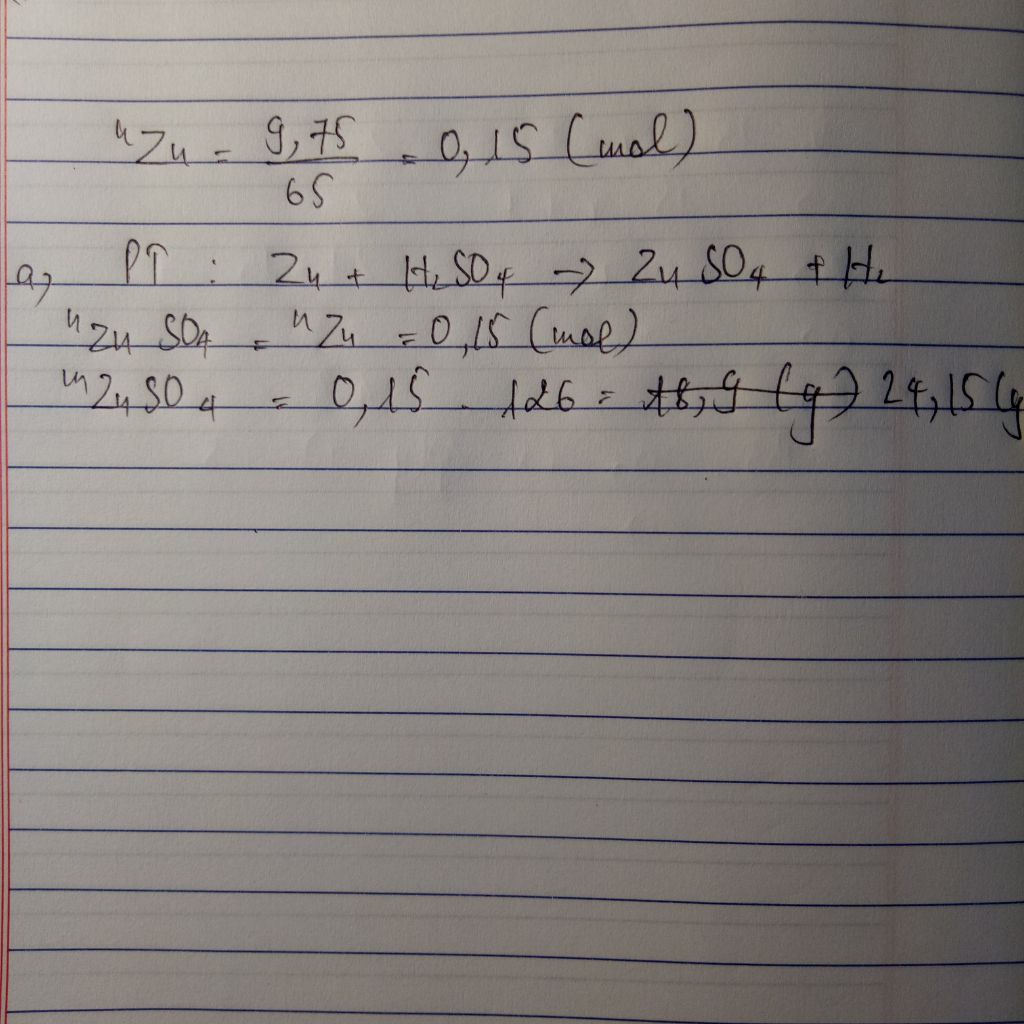 nZn = 9,75 / 65 = 0,15 (mol)
a, PT : Zn + H₂SO₄ → ZnSO₄ + H₂
nZnSO₄ = nZn = 0,15 (mol)
mZnSO₄ = 0,15 . 126 = 18,9 (g) 24,15 (g